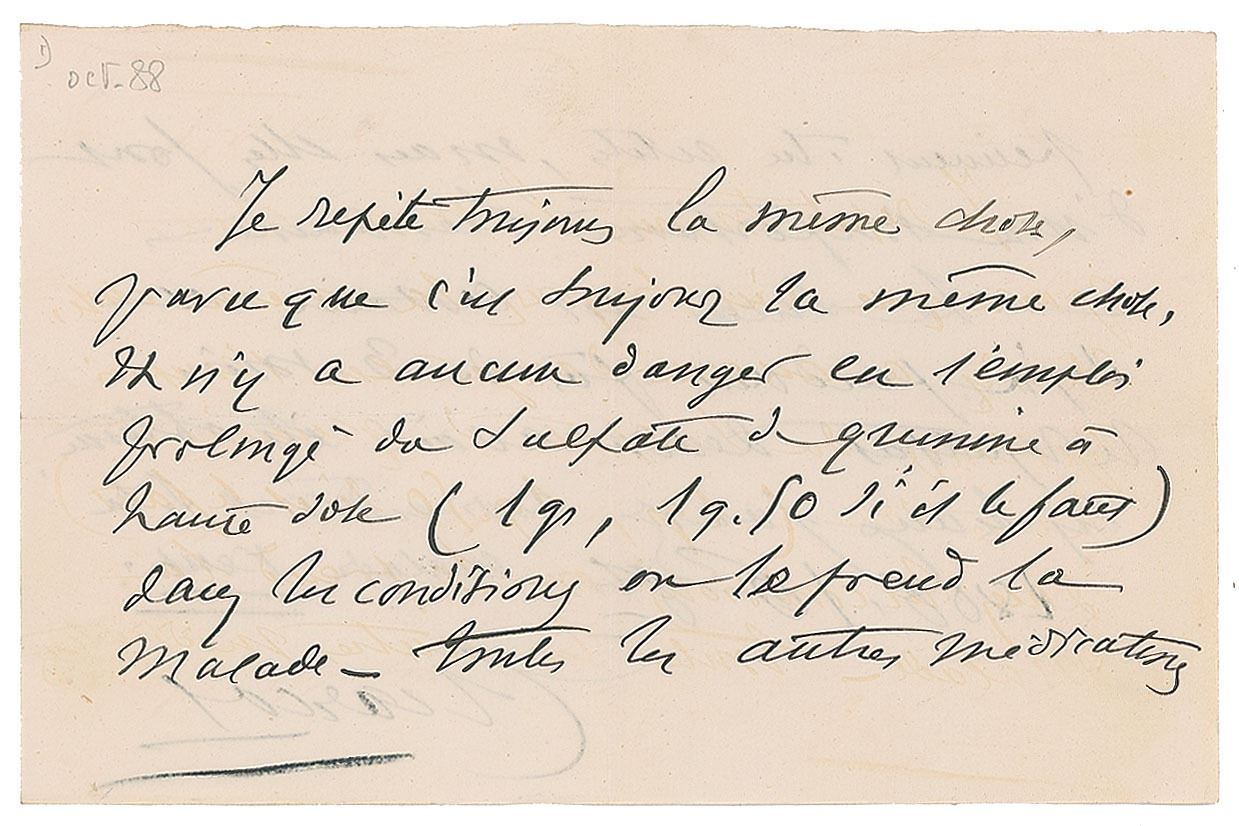 1)
oct-88
Je repète toujours la même chose,
parce que c'est toujours la même chose,
Il n'y a aucun danger en l'emploi
prolongé du Sulfate de quinine à
haute dose ( 1 gr, 1 g.50 s'il le faut)
dans les conditions où le prend la
Malade - toutes les autres médications